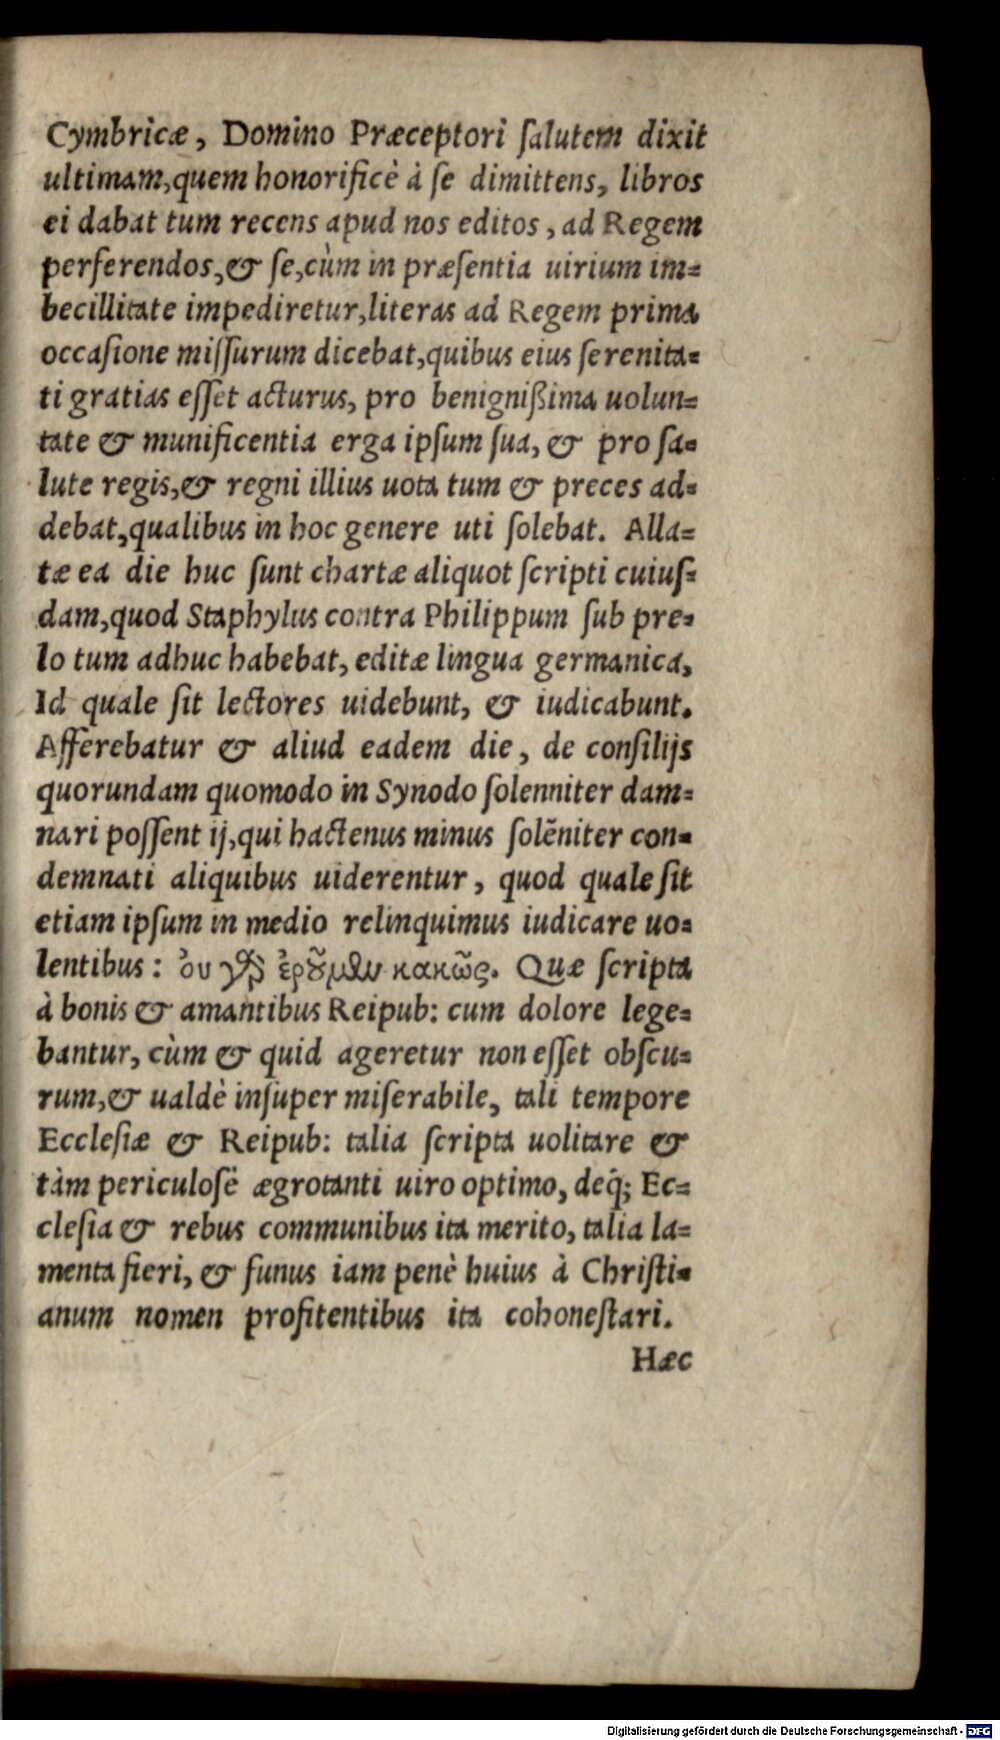 Cymbricæ, Domino Præceptori ſalutem dixit
ultimam,quem honorificè à ſe dimittens, libros
ei dabat tum recens apud nos editos, ad Regem
perferendos,& ſe,cùm in præſentia uirium im=
becillitate impediretur,literas ad Regem prima
occaſione miſſurum dicebat,quibus eius ſerenita=
ti gratias eſſet acturus, pro benignißima uolun=
tate & munificentia erga ipſum ſua, & pro ſa=
lute regis,& regni illius uota tum & preces ad=
debat,qualibus in hoc genere uti ſolebat. Alla=
tæ ea die huc ſunt chartæ aliquot ſcripti cuiuſ=
dam,quod Staphylus contra Philippum ſub pre=
lo tum adhuc habebat, editæ lingua germanica,
Id quale ſit lectores uidebunt, & iudicabunt.
Afferebatur & aliud eadem die, de conſilijs
quorundam quomodo in Synodo ſolenniter dam=
nari poſſent ij,qui hactenus minus ſolẽniter con=
demnati aliquibus uiderentur, quod quale ſit
etiam ipſum in medio relinquimus iudicare uo=
lentibus: ὀυ γὰρ ἐροῦμεν κακῶς. Quæ ſcripta
à bonis & amantibus Reipub: cum dolore lege=
bantur, cùm & quid ageretur non eſſet obſcu=
rum,& ualdè inſuper miſerabile, tali tempore
Eccleſiæ & Reipub: talia ſcripta uolitare &
tàm periculoſè ægrotanti uiro optimo, deq́; Ec=
cleſia & rebus communibus ita merito, talia la=
menta fieri, & funus iam penè huius à Chriſti=
anum nomen profitentibus ita cohoneſtari.
Hæc
Digitalisierung gefördert durch die Deutsche Forschungsgemeinschaft - DFG